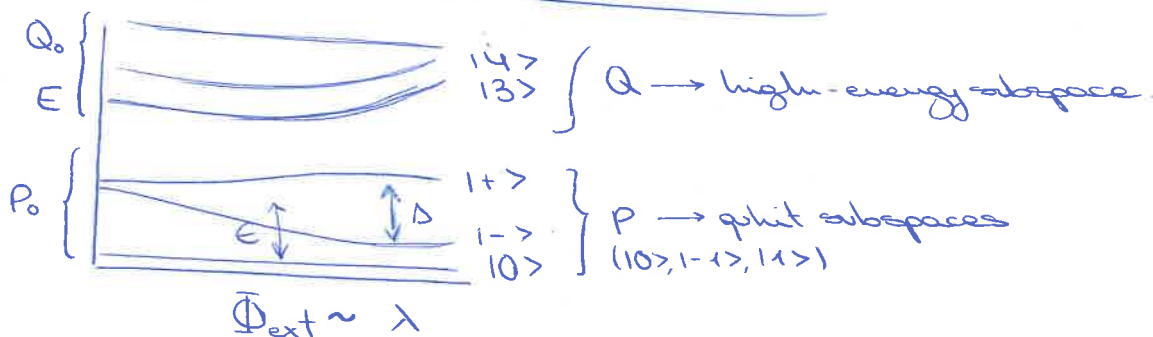 Q₀
|4>
|3>
Q → high-energy subspace
E
P₀
|+>
Δ
ϵ
|->
|0>
P → qubit subspaces
(|0>,|-1>,|1>)
Φext ~ λ